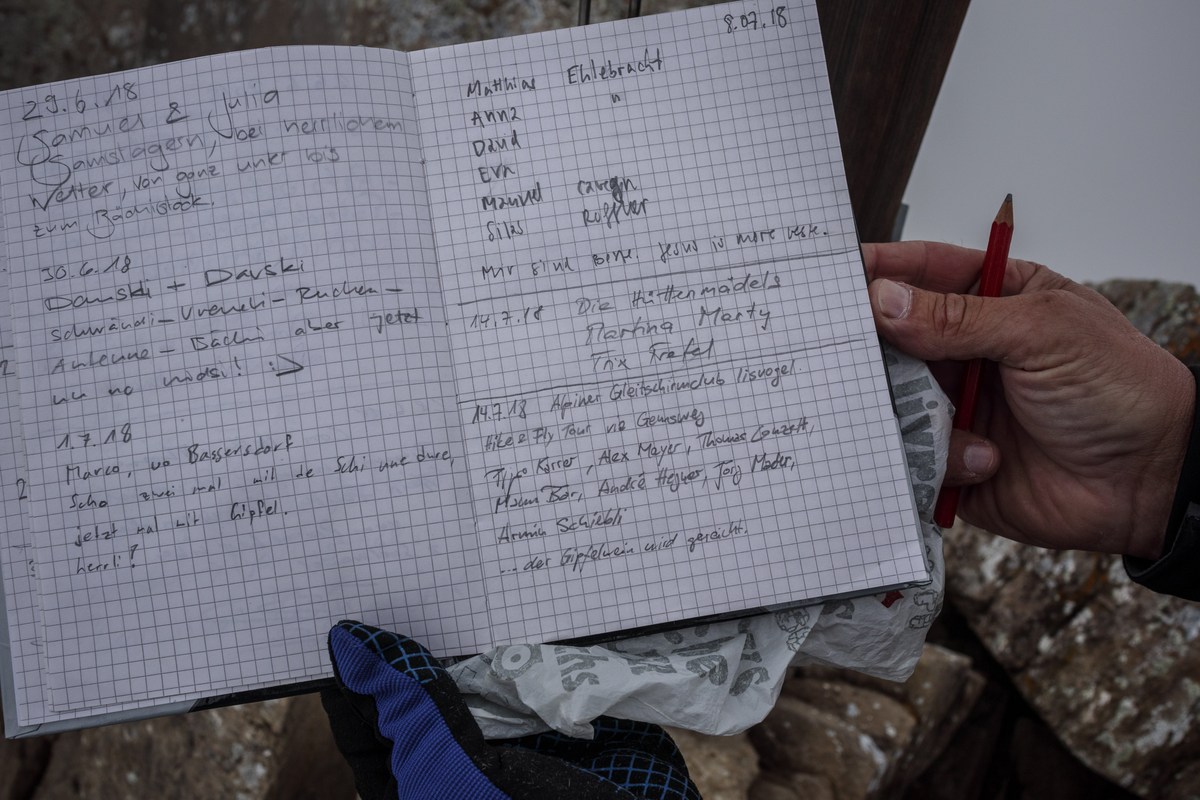 29.6.18
Samuel & Julia
Samstagern, bei herrlichem
Wetter, von ganz unter bis
zum Bächistock.
30.6.18
Darski + Darski
Schwändi - Vreneli - Ruchen -
Antenne - Bächi aber jetzt
no nidsi! :>
1.7.18
Marco, vo Bassersdorf
Scho zwei mal mit de Schi une dure,
jetzt mal mit Gipfel.
herrli!
8.07.18
Matthias Ehlebracht
Anna "
David
Eva
Manuel
Silas Roffler
Mir sind Jesus is more
14.7.18 Die Hüttenmädels
Martina Marty
Trix
14.7.18 Alpiner Gleitschirmclub lisvogel.
Hike & Fly Tour via Gemsweg
Alex Mayer, Thomas
André Hefner, Jörg Mader,
Armin Schiebli
... der Gipfelwein wird gereicht.